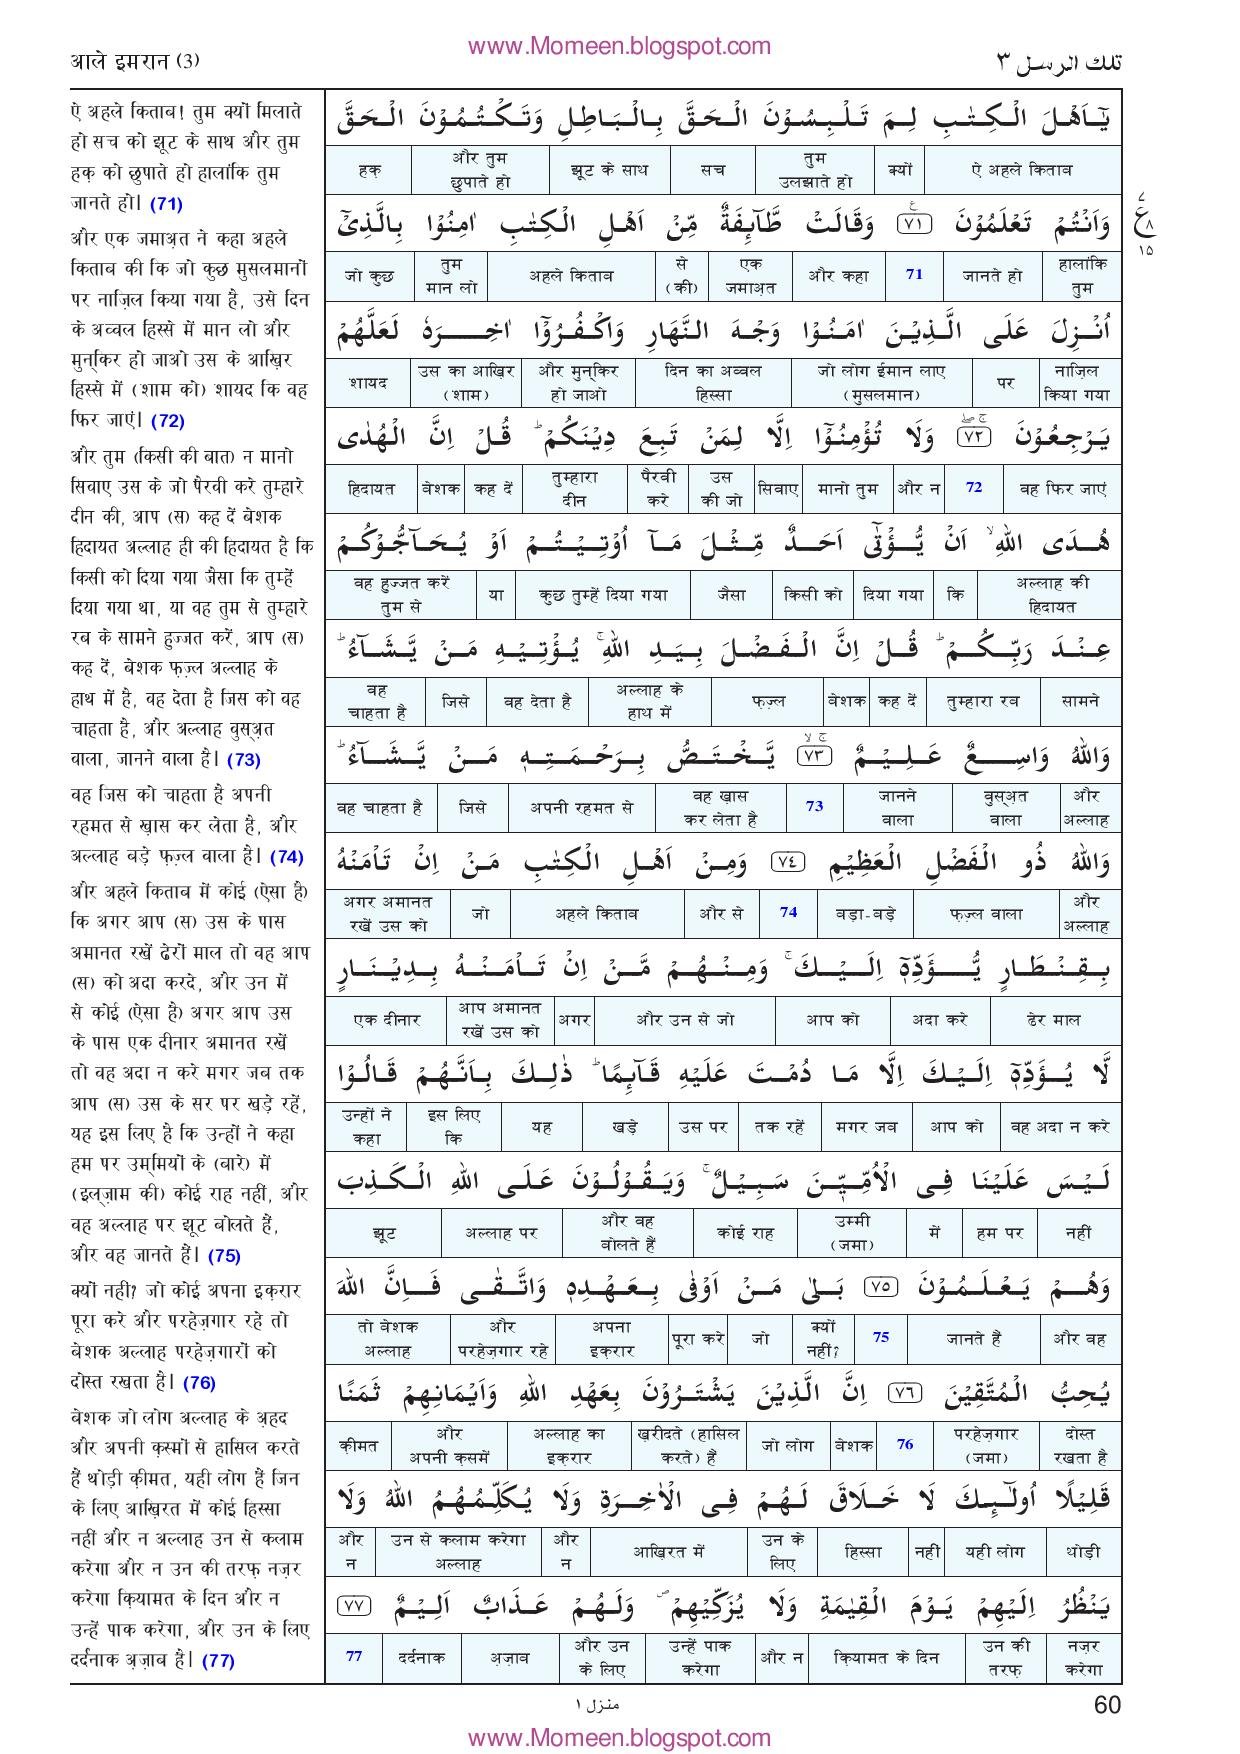 www.Momeen.blogspot.com
आले इमरान (3)
تلك الرسل ٣
ऐ अहले किताब! तुम क्यों मिलाते
हो सच को झूट के साथ और तुम
हक़ को छुपाते हो हालांकि तुम
जानते हो। (71)
और एक जमाअ़त ने कहा अहले
किताब की कि जो कुछ मुसलमानों
पर नाज़िल किया गया है, उसे दिन
के अव्वल हिस्से में मान लो और
मुन्किर हो जाओ उस के आख़िर
हिस्से में (शाम को) शायद कि वह
फिर जाएं। (72)
और तुम (किसी की बात) न मानो
सिवाए उस के जो पैरवी करे तुम्हारे
दीन की, आप (स) कह दें बेशक
हिदायत अल्लाह ही की हिदायत है कि
किसी को दिया गया जैसा कि तुम्हें
दिया गया था, या वह तुम से तुम्हारे
रब के सामने हुज्जत करें, आप (स)
कह दें, बेशक फ़ज़्ल अल्लाह के
हाथ में है, वह देता है जिस को वह
चाहता है, और अल्लाह वुस्अ़त
वाला, जानने वाला है। (73)
वह जिस को चाहता है अपनी
रहमत से ख़ास कर लेता है, और
अल्लाह बड़े फ़ज़्ल वाला है। (74)
और अहले किताब में कोई (ऐसा है)
कि अगर आप (स) उस के पास
अमानत रखें ढेरों माल तो वह आप
(स) को अदा करदे, और उन में
से कोई (ऐसा है) अगर आप उस
के पास एक दीनार अमानत रखें
तो वह अदा न करे मगर जब तक
आप (स) उस के सर पर खड़े रहें,
यह इस लिए है कि उन्हों ने कहा
हम पर उम्मियों के (बारे) में
(इल्ज़ाम की) कोई राह नहीं, और
वह अल्लाह पर झूट बोलते हैं,
और वह जानते हैं। (75)
क्यों नहीं? जो कोई अपना इक़रार
पूरा करे और परहेज़गार रहे तो
बेशक अल्लाह परहेज़गारों को
दोस्त रखता है। (76)
बेशक जो लोग अल्लाह के अ़हद
और अपनी क़स्मों से हासिल करते
हैं थोड़ी क़ीमत, यही लोग हैं जिन
के लिए आख़िरत में कोई हिस्सा
नहीं और न अल्लाह उन से कलाम
करेगा और न उन की तरफ़ नज़र
करेगा क़ियामत के दिन और न
उन्हें पाक करेगा, और उन के लिए
दर्दनाक अ़ज़ाब है। (77)
يٰٓاَهْلَ الْكِتٰبِ لِمَ تَلْبِسُوْنَ الْحَقَّ بِالْبَاطِلِ وَتَكْتُمُوْنَ الْحَقَّ
हक़ | और तुम छुपाते हो | झूट के साथ | सच | तुम उलझाते हो | क्यों | ऐ अहले किताब
وَاَنْتُمْ تَعْلَمُوْنَ ٧١ وَقَالَتْ طَّآئِفَةٌ مِّنْ اَهْلِ الْكِتٰبِ اٰمِنُوْا بِالَّذِيْٓ
जो कुछ | तुम मान लो | अहले किताब | से (की) | एक जमाअ़त | और कहा | 71 | जानते हो | हालांकि तुम
اُنْزِلَ عَلَى الَّذِيْنَ اٰمَنُوْا وَجْهَ النَّهَارِ وَاكْفُرُوْٓا اٰخِرَهٗ لَعَلَّهُمْ
शायद | उस का आख़िर (शाम) | और मुन्किर हो जाओ | दिन का अव्वल हिस्सा | जो लोग ईमान लाए (मुसलमान) | पर | नाज़िल किया गया
يَرْجِعُوْنَ ٧٢ وَلَا تُؤْمِنُوْٓا اِلَّا لِمَنْ تَبِعَ دِيْنَكُمْ ؕ قُلْ اِنَّ الْهُدٰى
हिदायत | बेशक | कह दें | तुम्हारा दीन | पैरवी करे | उस की जो | सिवाए | मानो तुम | और न | 72 | वह फिर जाएं
هُدَى اللّٰهِ ۙ اَنْ يُّؤْتٰٓى اَحَدٌ مِّثْلَ مَآ اُوْتِيْتُمْ اَوْ يُحَآجُّوْكُمْ
वह हुज्जत करें तुम से | या | कुछ तुम्हें दिया गया | जैसा | किसी को | दिया गया | कि | अल्लाह की हिदायत
عِنْدَ رَبِّكُمْ ؕ قُلْ اِنَّ الْفَضْلَ بِيَدِ اللّٰهِ ۚ يُؤْتِيْهِ مَنْ يَّشَآءُ ؕ
वह चाहता है | जिसे | वह देता है | अल्लाह के हाथ में | फ़ज़्ल | बेशक | कह दें | तुम्हारा रब | सामने
وَاللّٰهُ وَاسِعٌ عَلِيْمٌ ٧٣ يَّخْتَصُّ بِرَحْمَتِهٖ مَنْ يَّشَآءُ ؕ
वह चाहता है | जिसे | अपनी रहमत से | वह ख़ास कर लेता है | 73 | जानने वाला | वुस्अ़त वाला | और अल्लाह
وَاللّٰهُ ذُو الْفَضْلِ الْعَظِيْمِ ٧٤ وَمِنْ اَهْلِ الْكِتٰبِ مَنْ اِنْ تَاْمَنْهُ
अगर अमानत रखें उस को | जो | अहले किताब | और से | 74 | बड़ा-बड़े | फ़ज़्ल वाला | और अल्लाह
بِقِنْطَارٍ يُّؤَدِّهٖٓ اِلَيْكَ ۚ وَمِنْهُمْ مَّنْ اِنْ تَاْمَنْهُ بِدِيْنَارٍ
एक दीनार | आप अमानत रखें उस को | अगर | और उन से जो | आप को | अदा करे | ढेर माल
لَّا يُؤَدِّهٖٓ اِلَيْكَ اِلَّا مَا دُمْتَ عَلَيْهِ قَآئِمًا ؕ ذٰلِكَ بِاَنَّهُمْ قَالُوْا
उन्हों ने कहा | इस लिए कि | यह | खड़े | उस पर | तक रहें | मगर जब | आप को | वह अदा न करे
لَيْسَ عَلَيْنَا فِى الْاُمِّيّٖنَ سَبِيْلٌ ۚ وَيَقُوْلُوْنَ عَلَى اللّٰهِ الْكَذِبَ
झूट | अल्लाह पर | और वह बोलते हैं | कोई राह | उम्मी (जमा) | में | हम पर | नहीं
وَهُمْ يَعْلَمُوْنَ ٧٥ بَلٰى مَنْ اَوْفٰى بِعَهْدِهٖ وَاتَّقٰى فَاِنَّ اللّٰهَ
तो बेशक अल्लाह | और परहेज़गार रहे | अपना इक़रार | पूरा करे | जो | क्यों नहीं? | 75 | जानते हैं | और वह
يُحِبُّ الْمُتَّقِيْنَ ٧٦ اِنَّ الَّذِيْنَ يَشْتَرُوْنَ بِعَهْدِ اللّٰهِ وَاَيْمَانِهِمْ ثَمَنًا
क़ीमत | और अपनी क़समें | अल्लाह का इक़रार | ख़रीदते (हासिल करते) हैं | जो लोग | बेशक | 76 | परहेज़गार (जमा) | दोस्त रखता है
قَلِيْلًا اُولٰٓئِكَ لَا خَلَاقَ لَهُمْ فِى الْاٰخِرَةِ وَلَا يُكَلِّمُهُمُ اللّٰهُ وَلَا
और न | उन से कलाम करेगा अल्लाह | और न | आख़िरत में | उन के लिए | हिस्सा | नहीं | यही लोग | थोड़ी
يَنْظُرُ اِلَيْهِمْ يَوْمَ الْقِيٰمَةِ وَلَا يُزَكِّيْهِمْ ۪ وَلَهُمْ عَذَابٌ اَلِيْمٌ ٧٧
77 | दर्दनाक | अ़ज़ाब | और उन के लिए | उन्हें पाक करेगा | और न | क़ियामत के दिन | उन की तरफ़ | नज़र करेगा
٧
ع ٨
١٥
منزل ١
60
www.Momeen.blogspot.com